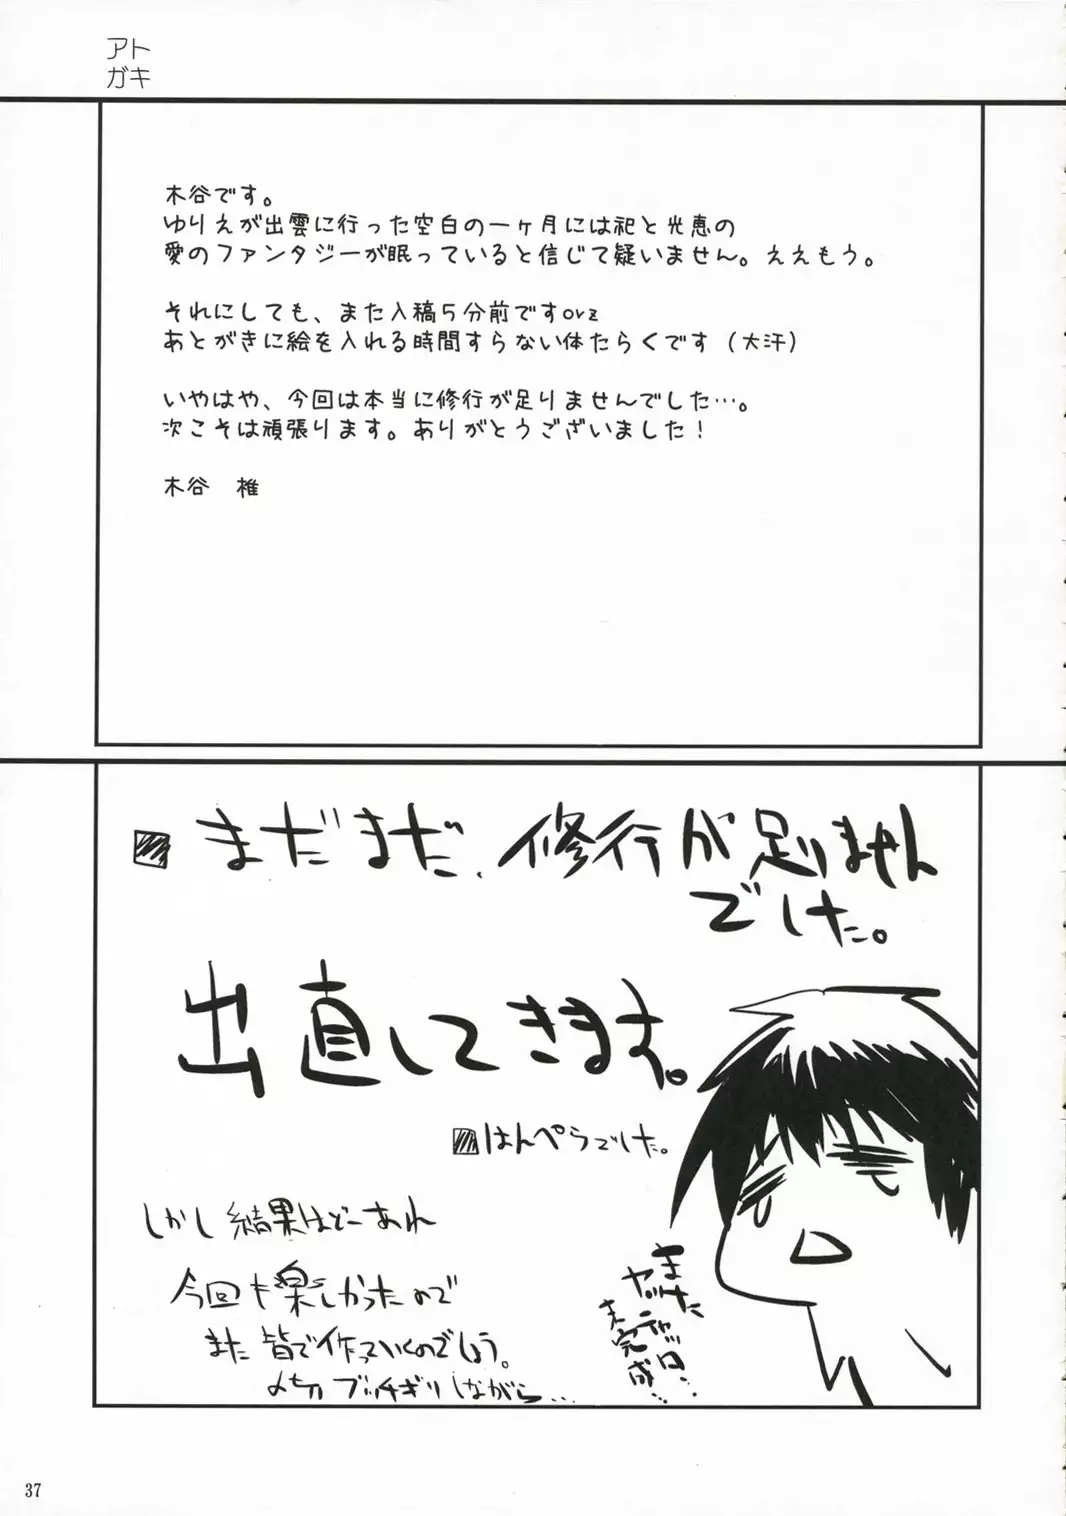 アト
ガキ
木谷です。
ゆりえが出雲に行った空白の一ヶ月には祀と光恵の
愛のファンタジーが眠っていると信じて疑いません。ええもう。
それにしても、また入稿5分前ですorz
あとがきに絵を入れる時間すらない体たらくです（大汗）
いやはや、今回は本当に修行が足りませんでした…。
次こそは頑張ります。ありがとうございました！
木谷　椎
まだまだ、修行が足りません
でした。
出直してきます。
はんぺらでした。
しかし結果はどーあれ
今回も楽しかったので
また皆で作っていくのでしょう。
〆切ブッチギリしながら…
また
ヤッ
チャッタ
未完成…
37